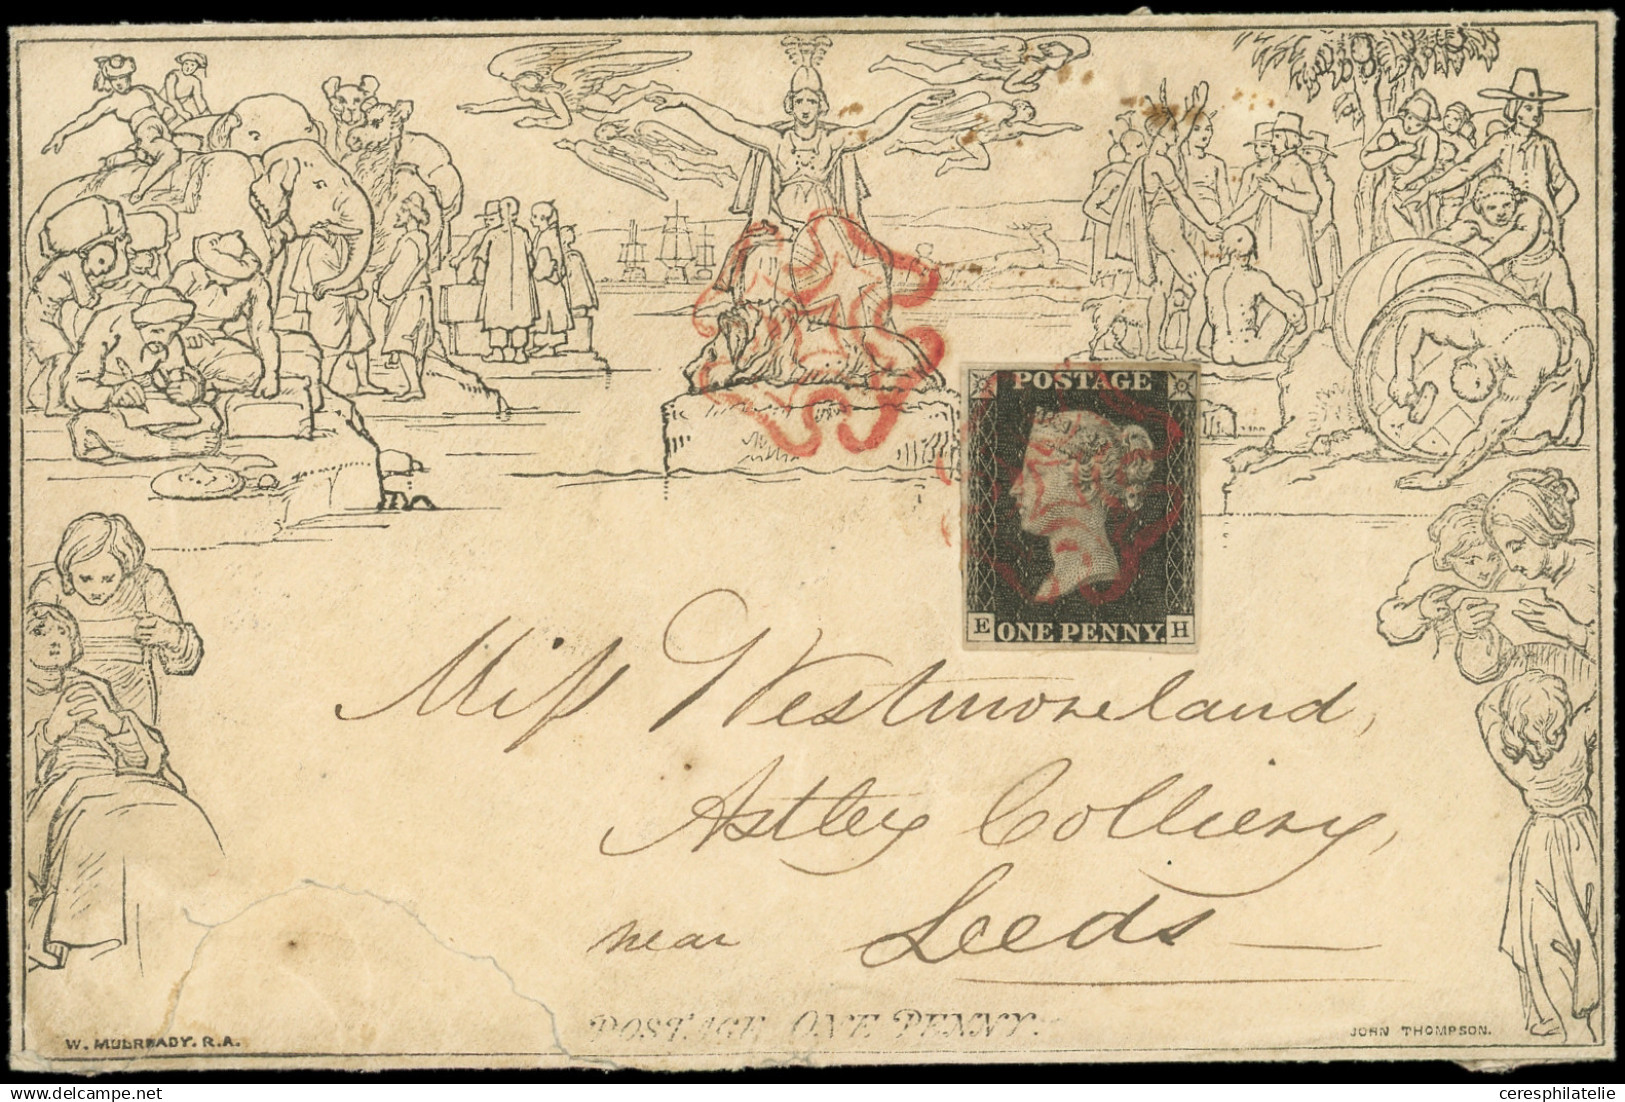 POSTAGE
E ONE PENNY H
Miss Westmoreland,
Astley Colliery,
near Leeds
POSTAGE ONE PENNY.
W. MULREADY. R.A.
JOHN THOMPSON.
ceresphilatelie